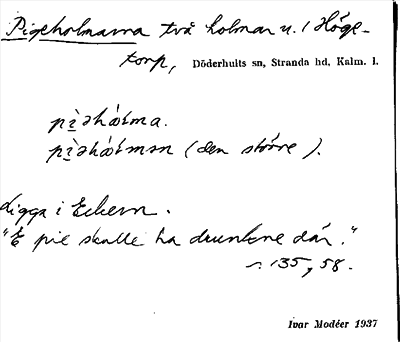 Pigeholmarna två holmar u. / Höge-
torp, Döderhults sn, Stranda hd, Kalm. l.
pì̱əhál̀ma.
pì̱əhál̀mən (den större).
Ligga i Eckern.
"E pie skulle ha drunkne där."
135, 58.
Ivar Modéer 1937